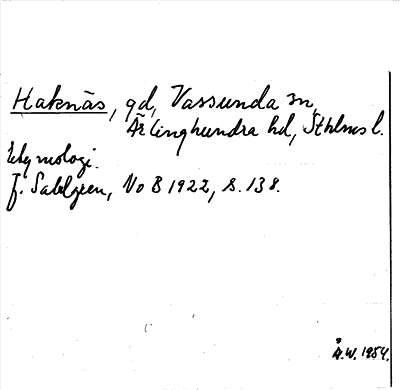 Haknäs, gd, Vassunda sn,
Ärlinghundra hd, Sthlms l.
Etymologi.
J. Sahlgren, NoB 1922, s. 138.
Å.W. 1954.